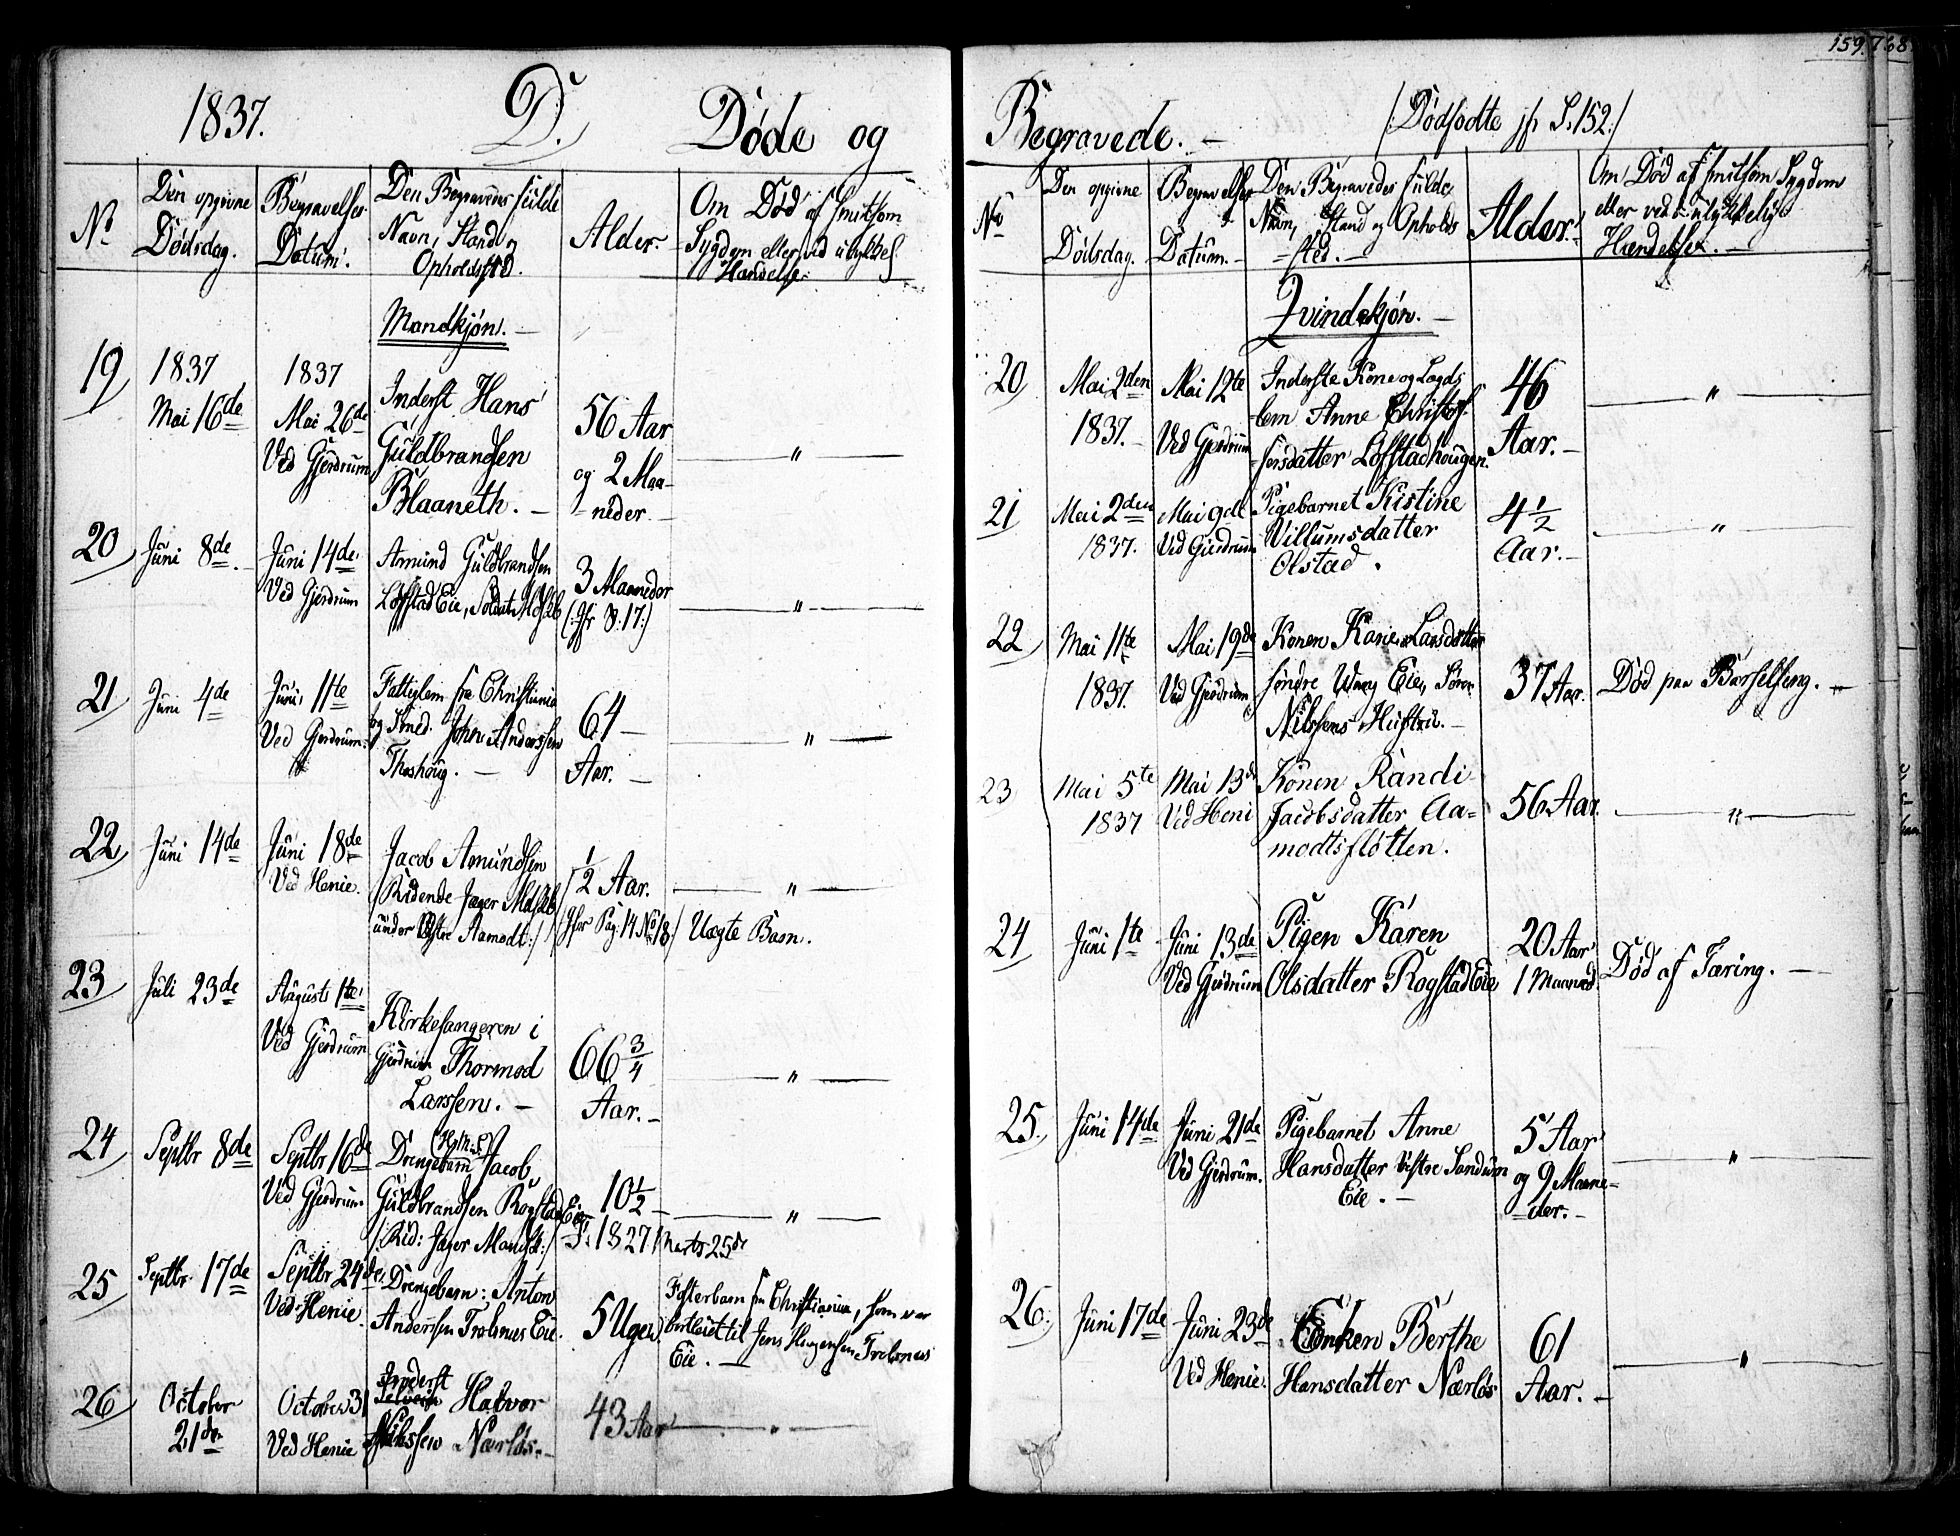 159. 768
1837. D. Døde og
No
Den opgivne
Dødsdag.
Begravelses
Datum.
Den Begravenes fulde
Navn, Stand og
Opholdsted.
Alder.
Om Død af smitsom
Sygdom eller ved ulykkel.
Hændelse.
Mandkjøn.
19 1837
Mai 16de
1837
Mai 26de
Ved Gjerdrum
Inderst Hans
Guldbrandsen
Blaaneth.
56 Aar
og 2 Maa-
neder.
"
20 Juni 8de
Juni 14de
Ved Gjerdrum
Amund Guldbrandsen
Løfstad Eie, Soldat
3 Maaneder
(:Jfr S. 17:)
"
21 Juni 4de
Juni 11te
Ved Gjerdrum
Fattiglem fra Christiania
og Smed John Anderssen
Thoshoug.
64
Aar.
"
22 Juni 14de
Juni 18de
Ved Henie.
Jacob Amundsen
(Ridende Jæger
under Østre Aamodt:)
1/2 Aar.
(Jfør Pag. 14 No 18:)
Uægte Barn.
23 Juli 23de
August 1te
Ved Gjerdrum
Kirkesangeren i
Gjerdrum Thormod
Larssen.
66 3/4
Aar.
"
24 Septbr 8de
Septbr 16de
Ved Gjerdrum
Drengebarn Jacob
Guldbrandsen Rogstad Eie
(Rid: Jæger
10 1/2
F. 1827 Marts 25de
"
25 Septbr. 17de
Septbr 24de
Ved Henie.
Drengebarn: Anton
Anderssen Trolsnes Eie.
5 Uger
Fosterbarn fra Christiania, som var
bortleiet til Jens Trolsnes
Eie.
26 October
21de
October 31
Ved Henie
Inderst
Halvor
Nilssen Nærløs.
43 Aar
"
Begravede. (Dødfødte jfr S. 152:)
No
Den opgivne
Dødsdag.
Begravelses
Datum.
Den Begravedes fulde
Navn, Stand og Opholds
sted.
Alder.
Om Død af smitsom Sygdom
eller ved ulykkelig
Hændelse.
Qvindekjøn.
20 Mai 2den
1837.
Mai 12te
Ved Gjerdrum
Inderste Kone og Lægds
lem Anne Christof-
fersdatter Løfstadhougen.
46
Aar.
"
21 Mai 2den
1837.
Mai 9de
Ved Gjerdrum
Pigebarnet Kistine
Villumsdatter
Olstad.
4 1/2
Aar.
"
22 Mai 11te
1837.
Mai 19de
Ved Gjerdrum
Konen Karie Larsdatter
søndre Eie, Søren
Nilssens Hustru.
37 Aar.
Død paa Barselseng.
23 Mai 5te
1837
Mai 13de
Ved Heni
Konen Randi
Jacobsdatter Aa-
modtsfløtten.
56 Aar.
"
24 Juni 1te
Juni 13de
Ved Gjerdrum
Pigen Karen
Olsdatter Rogstad Eie
20 Aar
1 Maaned.
Død af Tæring.
25. Juni 14de
Juni 21de
Ved Gjerdrum.
Pigebarnet Anne
Hansdatter vestre Sandum
Eie.
5 Aar
og 9 Maane-
der.
"
26. Juni 17de
Juni 23de
Ved Henie.
Enken Berthe
Hansdatter Nærløs
61
Aar.
"